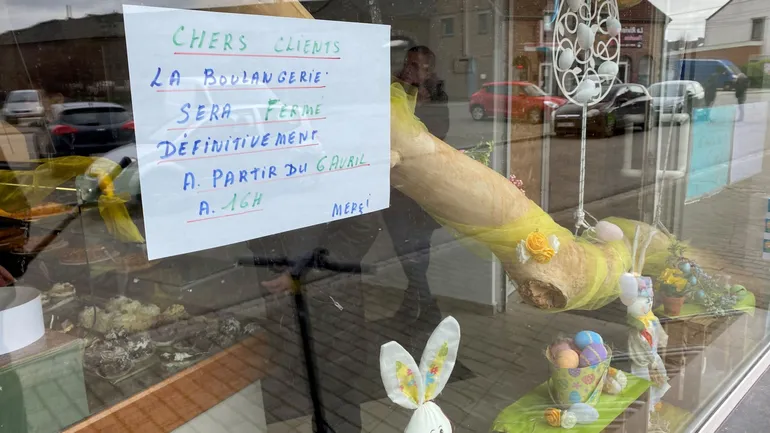 CHERS CLIENTS
LA BOULANGERIE
SERA FERME
DÉFINITIVEMENT
A. PARTIR DU 6 AVRIL
A. 16H
MERÇI